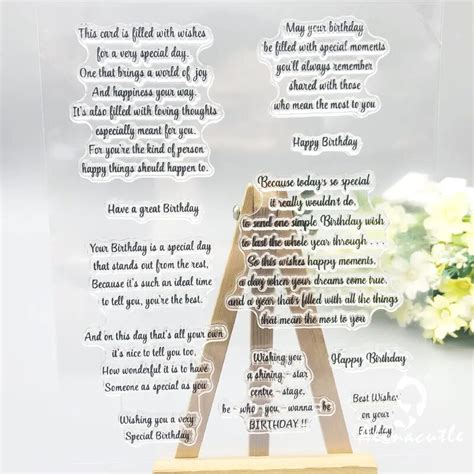 This card is filled with wishes
for a very special day.
One that brings a world of joy
And happiness your way.
It's also filled with loving thoughts
especially meant for you.
For you're the kind of person
happy things should happen to.
Have a great Birthday
Your Birthday is a special day
that stands out from the rest,
Because it's such an ideal time
to tell you, you're the best.
And on this day that's all your own
it's nice to tell you too,
How wonderful it is to have
Someone as special as you
Wishing you a very
Special Birthday
May your birthday
be filled with special moments
you'll always remember
shared with those
who mean the most to you
Happy Birthday
Because today's so special
it really wouldn't do,
to send one simple Birthday wish
to last the whole year through . . .
So this wishes happy moments,
a day when your dreams come true.
and a year that's filled with all the things
that mean the most to you
Wishing you
a shining - star
centre - stage,
be - who - you - wanna - be
BIRTHDAY !!
Happy Birthday
Best Wishes
on your
Birthday